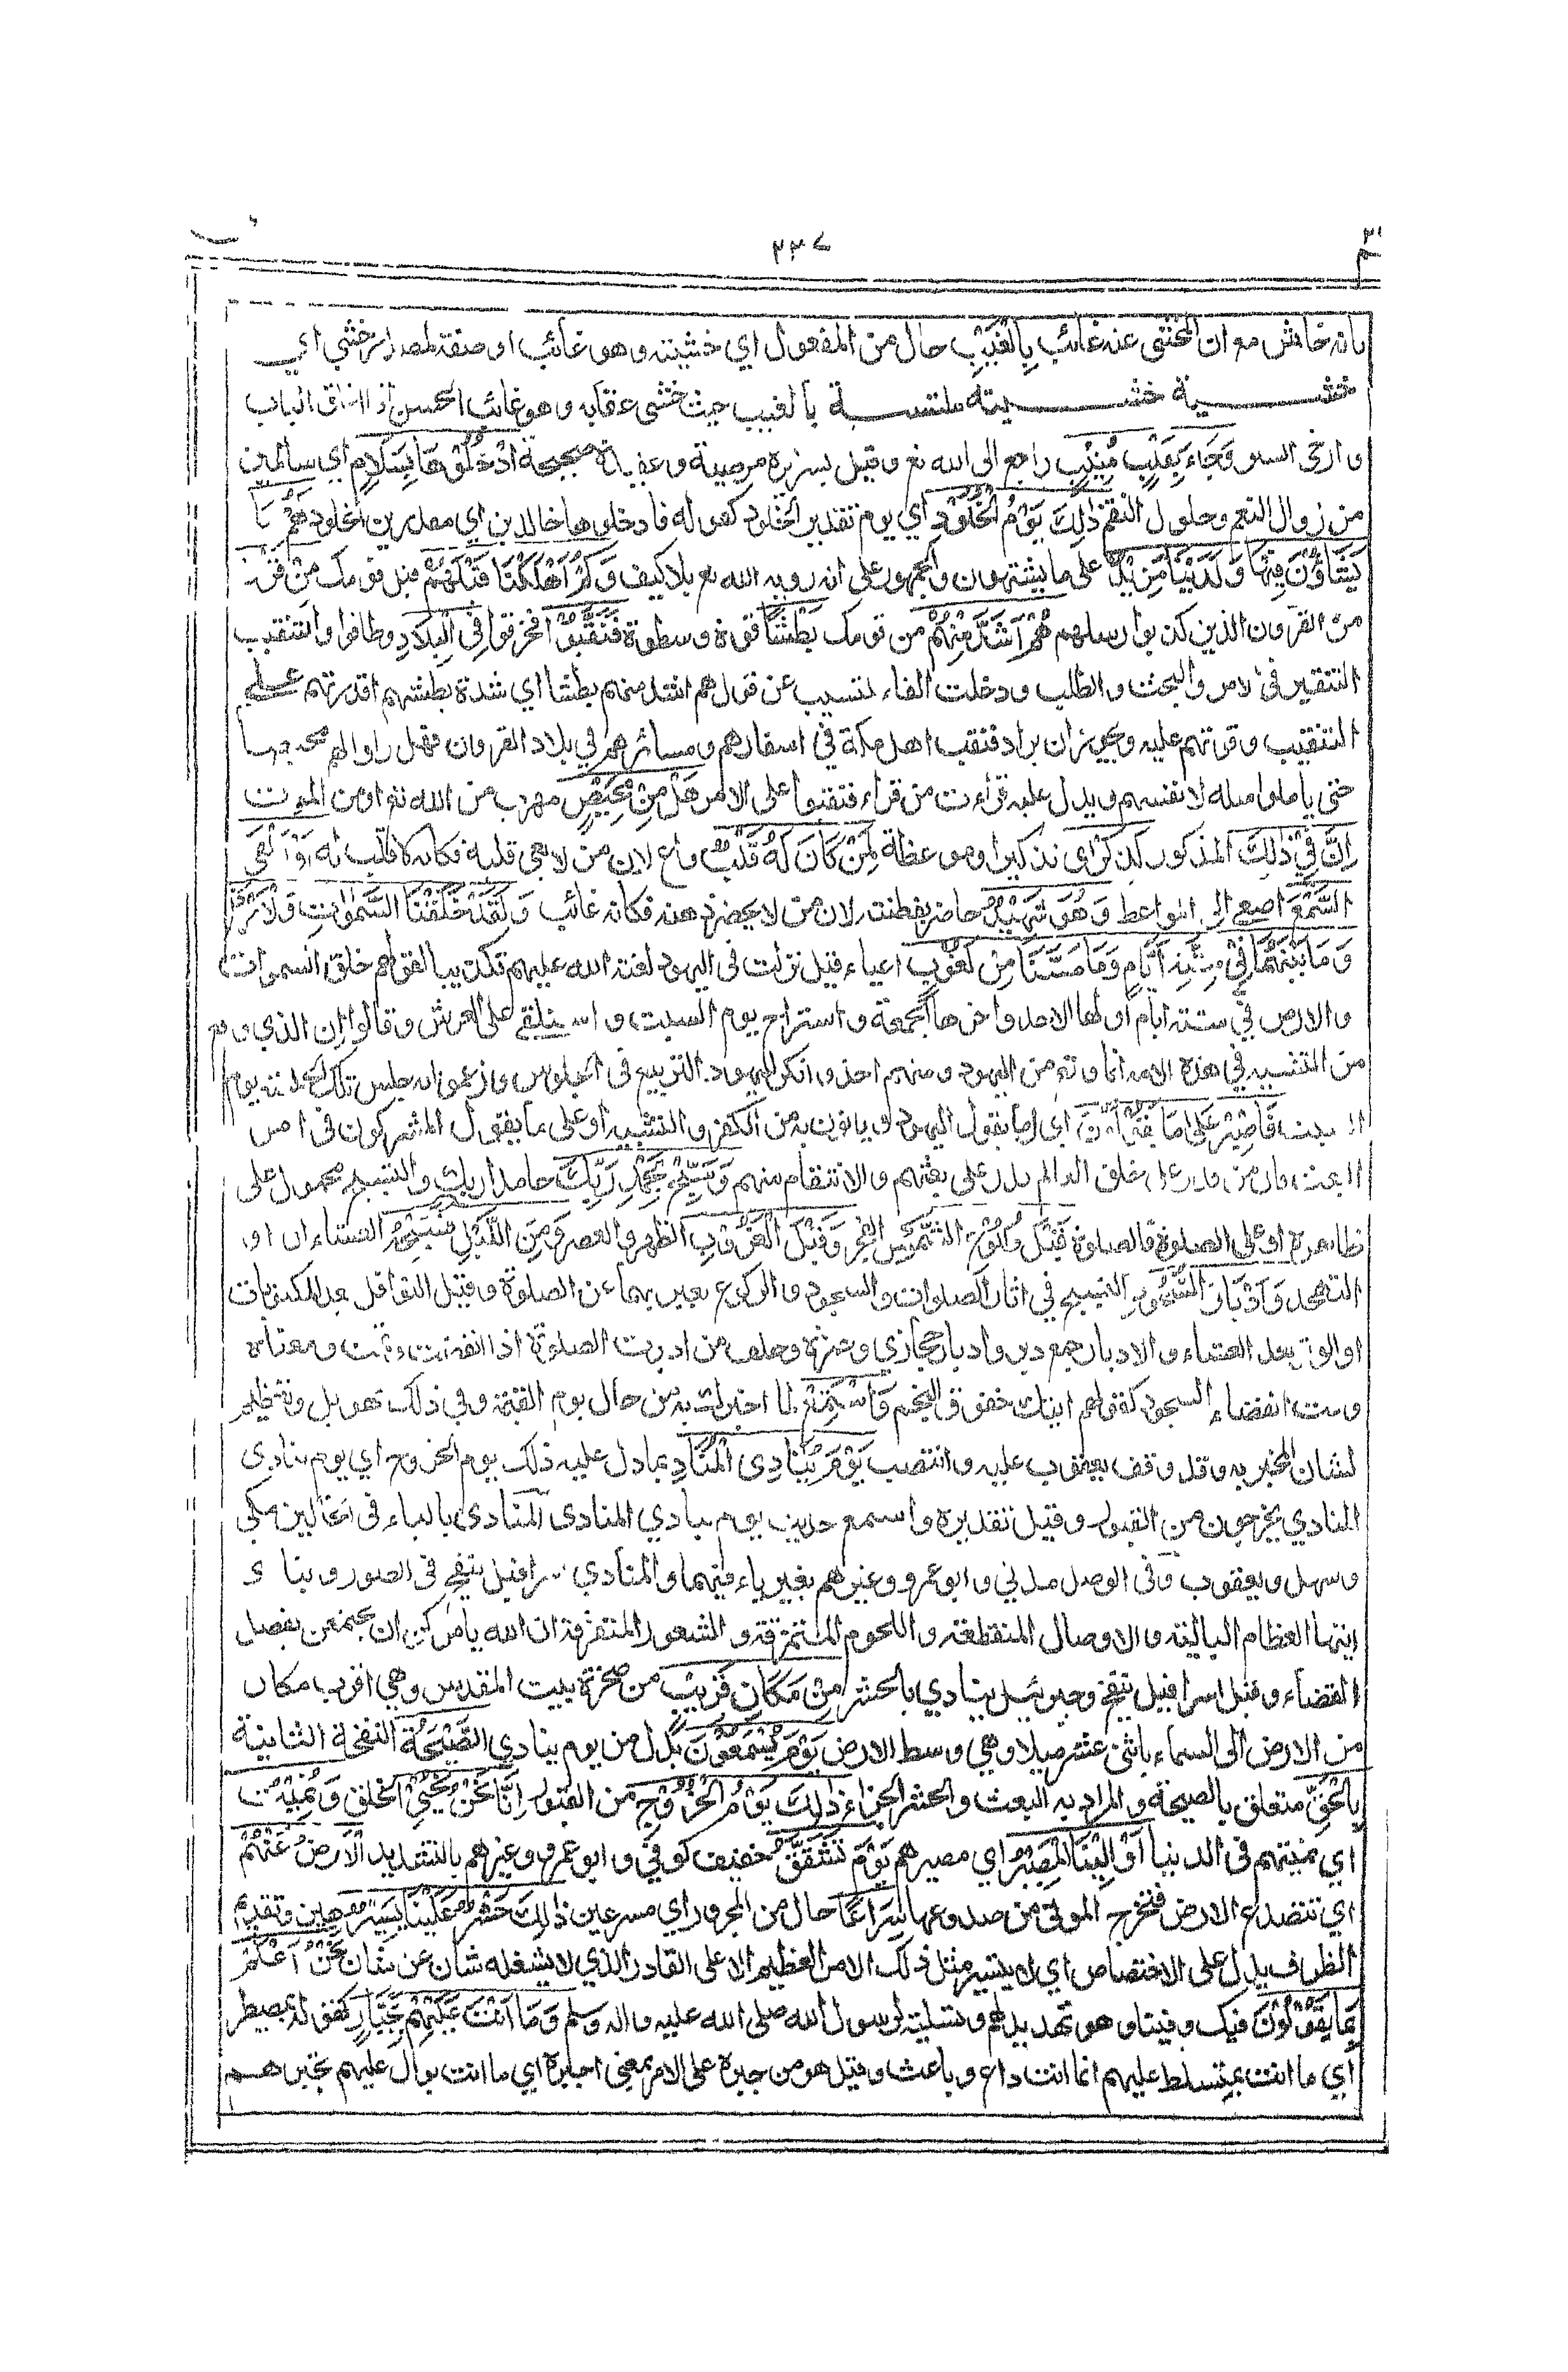 ٢٣٧
بانه خاش مع ان المخشى عنه غائب بِالْغَيْبِ حال من المفعول اي خشيته وهو غائب او صفة لمصدر خشي اي
خشية خشيته ملتبسة بالغيب حيث خشى عقابه وهو غائب الحسن اذا اغلق الباب
وارخى الستر وَجَاءَ بِقَلْبٍ مُّنِيْبٍ راجع الى الله تع وقيل بسريرة مرضية وعقيدة صحيحة اُدْخُلُوْهَا بِسَلَامٍ اي سالمين
من زوال النعم وحلول النقم ذٰلِكَ يَوْمُ الْخُلُوْدِ اي يوم تقدير الخلود كقوله فادخلوها خالدين اي مقدرين الخلود لَهُمْ مَّا
يَشَاؤُنَ فِيْهَا وَلَدَيْنَا مَزِيْدٌ على ما يشتهون والجمهور على انه روية الله تع بلا كيف وَكَمْ اَهْلَكْنَا قَبْلَهُمْ قبل قومك مِنْ قَرْنٍ
من القرون الذين كذبوا رسلهم هُمْ اَشَدُّ مِنْهُمْ من قومك بَطْشًا قوة وسطوة فَنَقَّبُوْا فخرقوا فِى الْبِلَادِ وطافوا والتنقيب
التنقير في الامر والبحث والطلب ودخلت الفاء لتسبب عن قوله هم اشد منهم بطشا اي شدة بطشهم اقدرتهم على
التنقيب وقوتهم عليه ويجوز ان يراد فنقب اهل مكة في اسفارهم ومسائرهم في بلاد القرون فهل راوا لهم محيصا
حتى ياملوا مثله لانفسهم ويدل عليه قراءت من قراء فنقبوا على الامر هَلْ مِنْ مَّحِيْصٍ مهرب من الله تع او من الموت
اِنَّ فِىْ ذٰلِكَ المذكور لَذِكْرٰى تذكيرا وموعظة لِمَنْ كَانَ لَهٗ قَلْبٌ واع لان من لا يعي قلبه فكانه لا قلب له اَوْ اَلْقَى
السَّمْعَ اصغى الى المواعظ وَهُوَ شَهِيْدٌ حاضر بفطنته لان من لا يحضر ذهنه فكانه غائب وَلَقَدْ خَلَقْنَا السَّمٰوٰتِ وَالْاَرْضَ
وَمَا بَيْنَهُمَا فِىْ سِتَّةِ اَيَّامٍ وَمَا مَسَّنَا مِنْ لُّغُوْبٍ اعياء قيل نزلت في اليهود لعنة الله عليهم تكذيبا لقولهم خلق السموات
والارض في ستة ايام اولها الاحد واخرها الجمعة واستراح يوم السبت واستلقى على العرش وقالوا ان الذي وقع
من التشبيه في هذه الامة انما وقع من اليهود ومنهم اخذ وانكر اليهود التربيع في الجلوس وزعموا انه جلس تلك الجلسة يوم
السبت فَاصْبِرْ عَلٰى مَا يَقُوْلُوْنَ اي ما يقول اليهود وياتون به من الكفر والتشبيه او على ما يقول المشركون في امر
البعث فان من قدر على خلق العالم قدر على بعثهم والانتقام منهم وَسَبِّحْ بِحَمْدِ رَبِّكَ حامدا ربك والتسبيح محمول على
ظاهره او على الصلوة فالصلوة قَبْلَ طُلُوْعِ الشَّمْسِ الفجر وَقَبْلَ الْغُرُوْبِ الظهر والعصر وَمِنَ الَّيْلِ فَسَبِّحْهُ العشاءان او
التهجد وَاَدْبَارَ السُّجُوْدِ التسبيح في اثار الصلوات والسجود والركوع يعبر بهما عن الصلوة وقيل النوافل بعد المكتوبات
او الوتر بعد العشاء والادبار جمع دبر وادبار حجازي وحمزة وخلف من ادبرت الصلوة اذا انقضت وتمت ومعناه
وقت انقضاء السجود كقولهم اتيك خفوق النجم وَاسْتَمِعْ لما اخبرك به من حال يوم القيمة وفي ذلك تهويل وتعظيم
لشان المخبر به وقد وقف يعقوب عليه وانتصب يَوْمَ يُنَادِى الْمُنَادِ بما دل عليه ذلك يوم الخروج اي يوم ينادي
المنادي يخرجون من القبور وقيل تقديره واستمع حديث يوم ينادي المنادى المنادى بالياء في الحالين مكي
وسهل ويعقوب وفي الوصل مدني وابو عمرو وغيرهم بغير ياء فيهما والمنادي اسرافيل ينفخ في الصور وينادي
ايتها العظام البالية والاوصال المنقطعة واللحوم المتمزقة والشعور المتفرقة ان الله يامركن ان تجتمعن بفصل
القضاء وقيل اسرافيل ينفخ وجبرئيل ينادي بالحشر مِنْ مَّكَانٍ قَرِيْبٍ من صخرة بيت المقدس وهي اقرب مكان
من الارض الى السماء باثنى عشر ميلا وهي وسط الارض يَوْمَ يَسْمَعُوْنَ بدل من يوم ينادي الصَّيْحَةَ النفخة الثانية
بِالْحَقِّ متعلق بالصيحة والمراد به البعث والحشر الجزاء ذٰلِكَ يَوْمُ الْخُرُوْجِ من القبور اِنَّا نَحْنُ نُحْيِىْ الخلق وَنُمِيْتُ
اي نميتهم في الدنيا وَاِلَيْنَا الْمَصِيْرُ اي مصيرهم يَوْمَ تَشَقَّقُ خفيف كوفي وابو عمرو وغيرهم بالتشديد الْاَرْضُ عَنْهُمْ
اي تتصدع الارض فتخرج الموتى من صدوعها سِرَاعًا حال من المجرور اي مسرعين ذٰلِكَ حَشْرٌ عَلَيْنَا يَسِيْرٌ هين وتقديم
الظرف يدل على الاختصاص اي لا يتيسر مثل ذلك الامر العظيم الا على القادر الذي لا يشغله شان عن شان نَحْنُ اَعْلَمُ
بِمَا يَقُوْلُوْنَ فيك وفينا وهو تهديد لهم وتسلية لرسول الله صلى الله عليه واله وسلم وَمَا اَنْتَ عَلَيْهِمْ بِجَبَّارٍ كقوله بمصيطر
اي ما انت بمتسلط عليهم انما انت داع وباعث وقيل هو من جبره على الامر بمعنى اجبره اي ما انت بوال عليهم تجبرهم